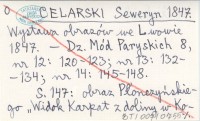 CELARSKI Seweryn 1847.
Wystawa obrazów we Lwowie
1847. — Dz. Mód Paryskich 8,
nr 12: 120-123; nr 13: 132-
-134; nr 14: 145-148.
S. 147: obraz Płonczyńskie-
go „Widok Karpat z doliny w Ko-